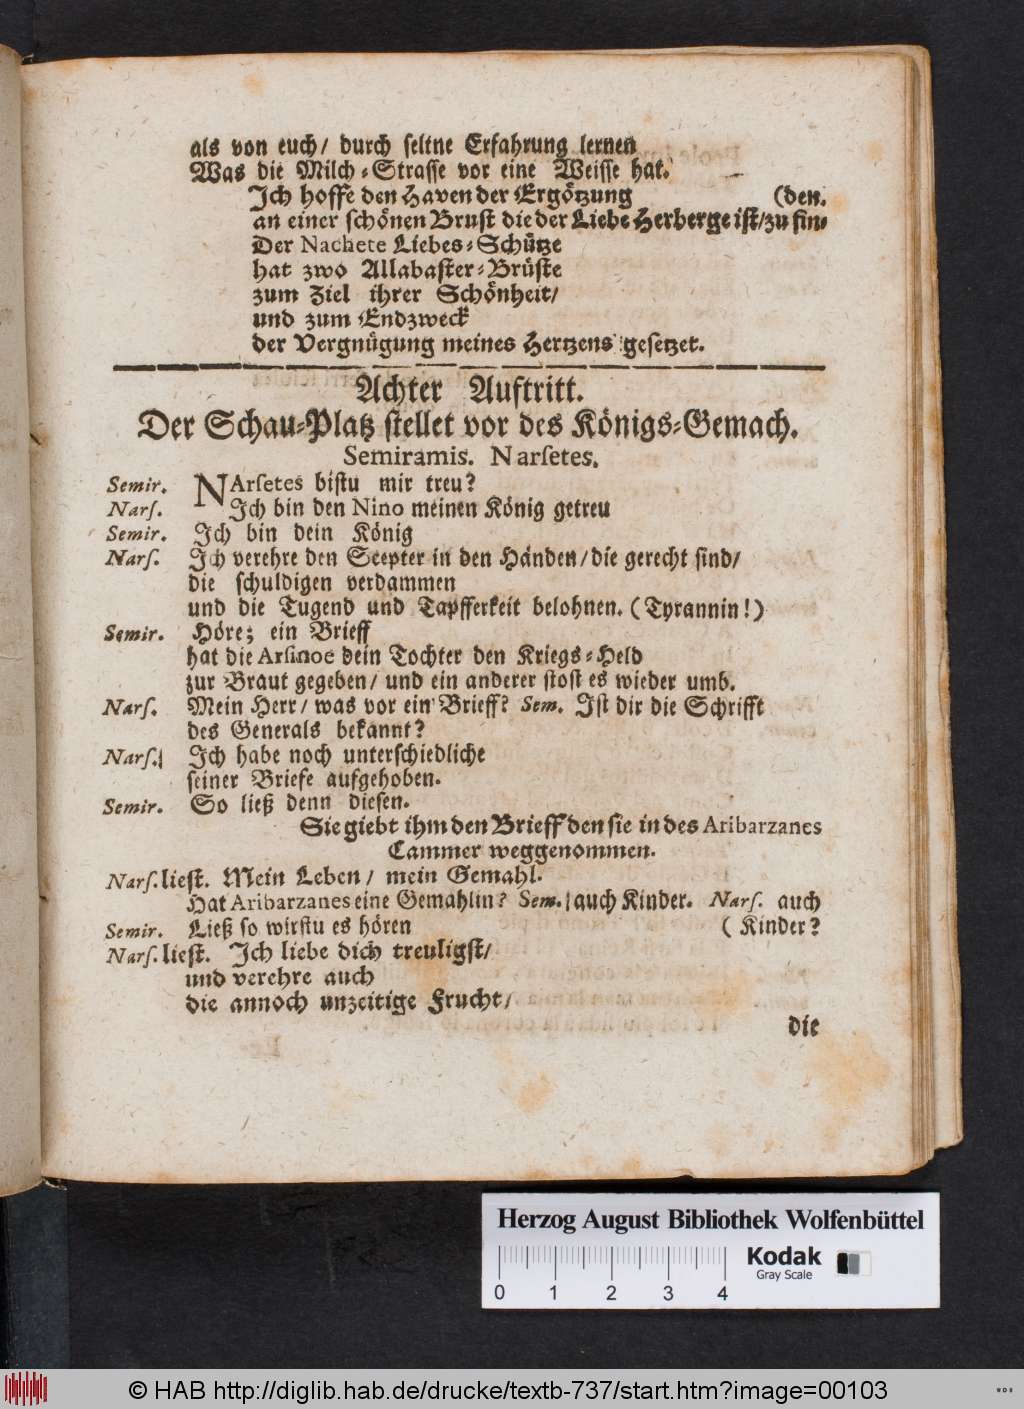 als von euch/ durch seltne Erfahrung lernen
Was die Milch-Strasse vor eine Weisse hat.
Ich hoffe den Haven der Ergötzung (den.
an einer schönen Brust die der Liebe Herberge ist/zu fin-
Der Nackete Liebes-Schütze
hat zwo Allabaster-Brüste
zum Ziel ihrer Schönheit/
und zum Endzweck
der Vergnügung meines Hertzens gesetzet.
Achter Auftritt.
Der Schau-Platz stellet vor des Königs-Gemach.
Semiramis. Narsetes.
Semir. NArsetes bistu mir treu?
Nars. Ich bin den Nino meinen König getreu
Semir. Ich bin dein König
Nars. Ich verehre den Scepter in den Händen/die gerecht sind/
die schuldigen verdammen
und die Tugend und Tapfferkeit belohnen. (Tyrannin!)
Semir. Höre; ein Brieff
hat die Arsinoe dein Tochter den Kriegs-Held
zur Braut gegeben/ und ein anderer stost es wieder umb.
Nars. Mein Herr/ was vor ein Brieff? Sem. Ist dir die Schrifft
des Generals bekannt?
Nars. Ich habe noch unterschiedliche
seiner Briefe aufgehoben.
Semir. So ließ denn diesen.
Sie giebt ihm den Brieff den sie in des Aribarzanes
Cammer weggenommen.
Nars. liest. Mein Leben/ mein Gemahl.
Hat Aribarzanes eine Gemahlin? Sem. auch Kinder. Nars. auch
Semir. Ließ so wirstu es hören (Kinder?
Nars. liest. Ich liebe dich treuligst/
und verehre auch
die annoch unzeitige Frucht/
die
Herzog August Bibliothek Wolfenbüttel
0 1 2 3 4
Kodak
Gray Scale
© HAB http://diglib.hab.de/drucke/textb-737/start.htm?image=00103